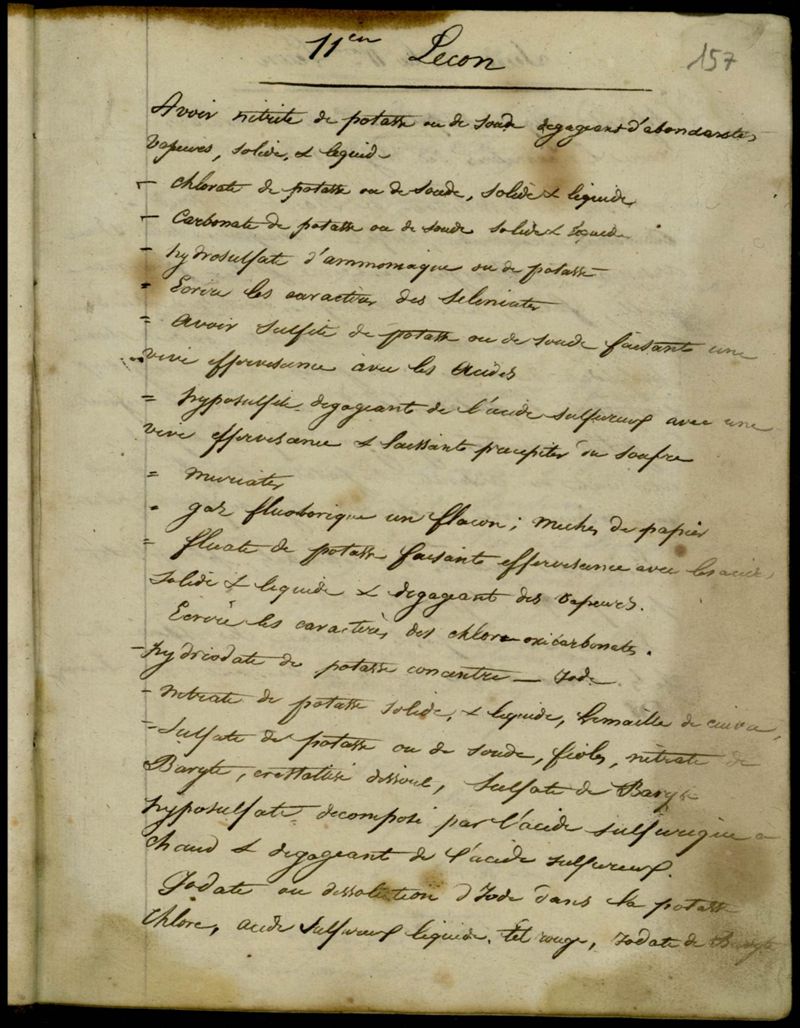 11en Lecon
157
Avoir nitrite de potasse ou de soude degageant d'abondantes
vapeures, solide, & liquide
– chlorate de potasse ou de soude, solide & liquide
– Carbonate de potasse ou de soude solide & liquide
– hydrosulfate d'ammoniaque ou de potasse
= Ecrire les caracteres des seleniates
= Avoir sulfite de potasse ou de soude faisante une
vive effervesance avec les Acides
= hyposulfite degageante de l'acide sulfureux avec une
vive effervesance & laissante precipiter du soufre
= muriates
= gaz fluoborique un flacon; meches de papier
= fluate de potasse faisante effervesance avec les acides
solide & liquide & degageant des vapeures.
Ecrire les caracteres des chloro-oxicarbonates.
– hydriodate de potasse concentre – Iode
– nitrate de potasse solide, & liquide, limaille de cuivre,
= sulfate de potasse ou de soude, fioles, nitrate de
Baryte, cristallisé dissout, sulfate de Baryte
hyposulfate decomposé par l'acide sulfurique a
chaud & degageant de l'acide sulfureux.
Iodate ou dissolution d'Iode dans la potasse
chlore, acide sulfureux liquide, rouge, Iodate de Baryte